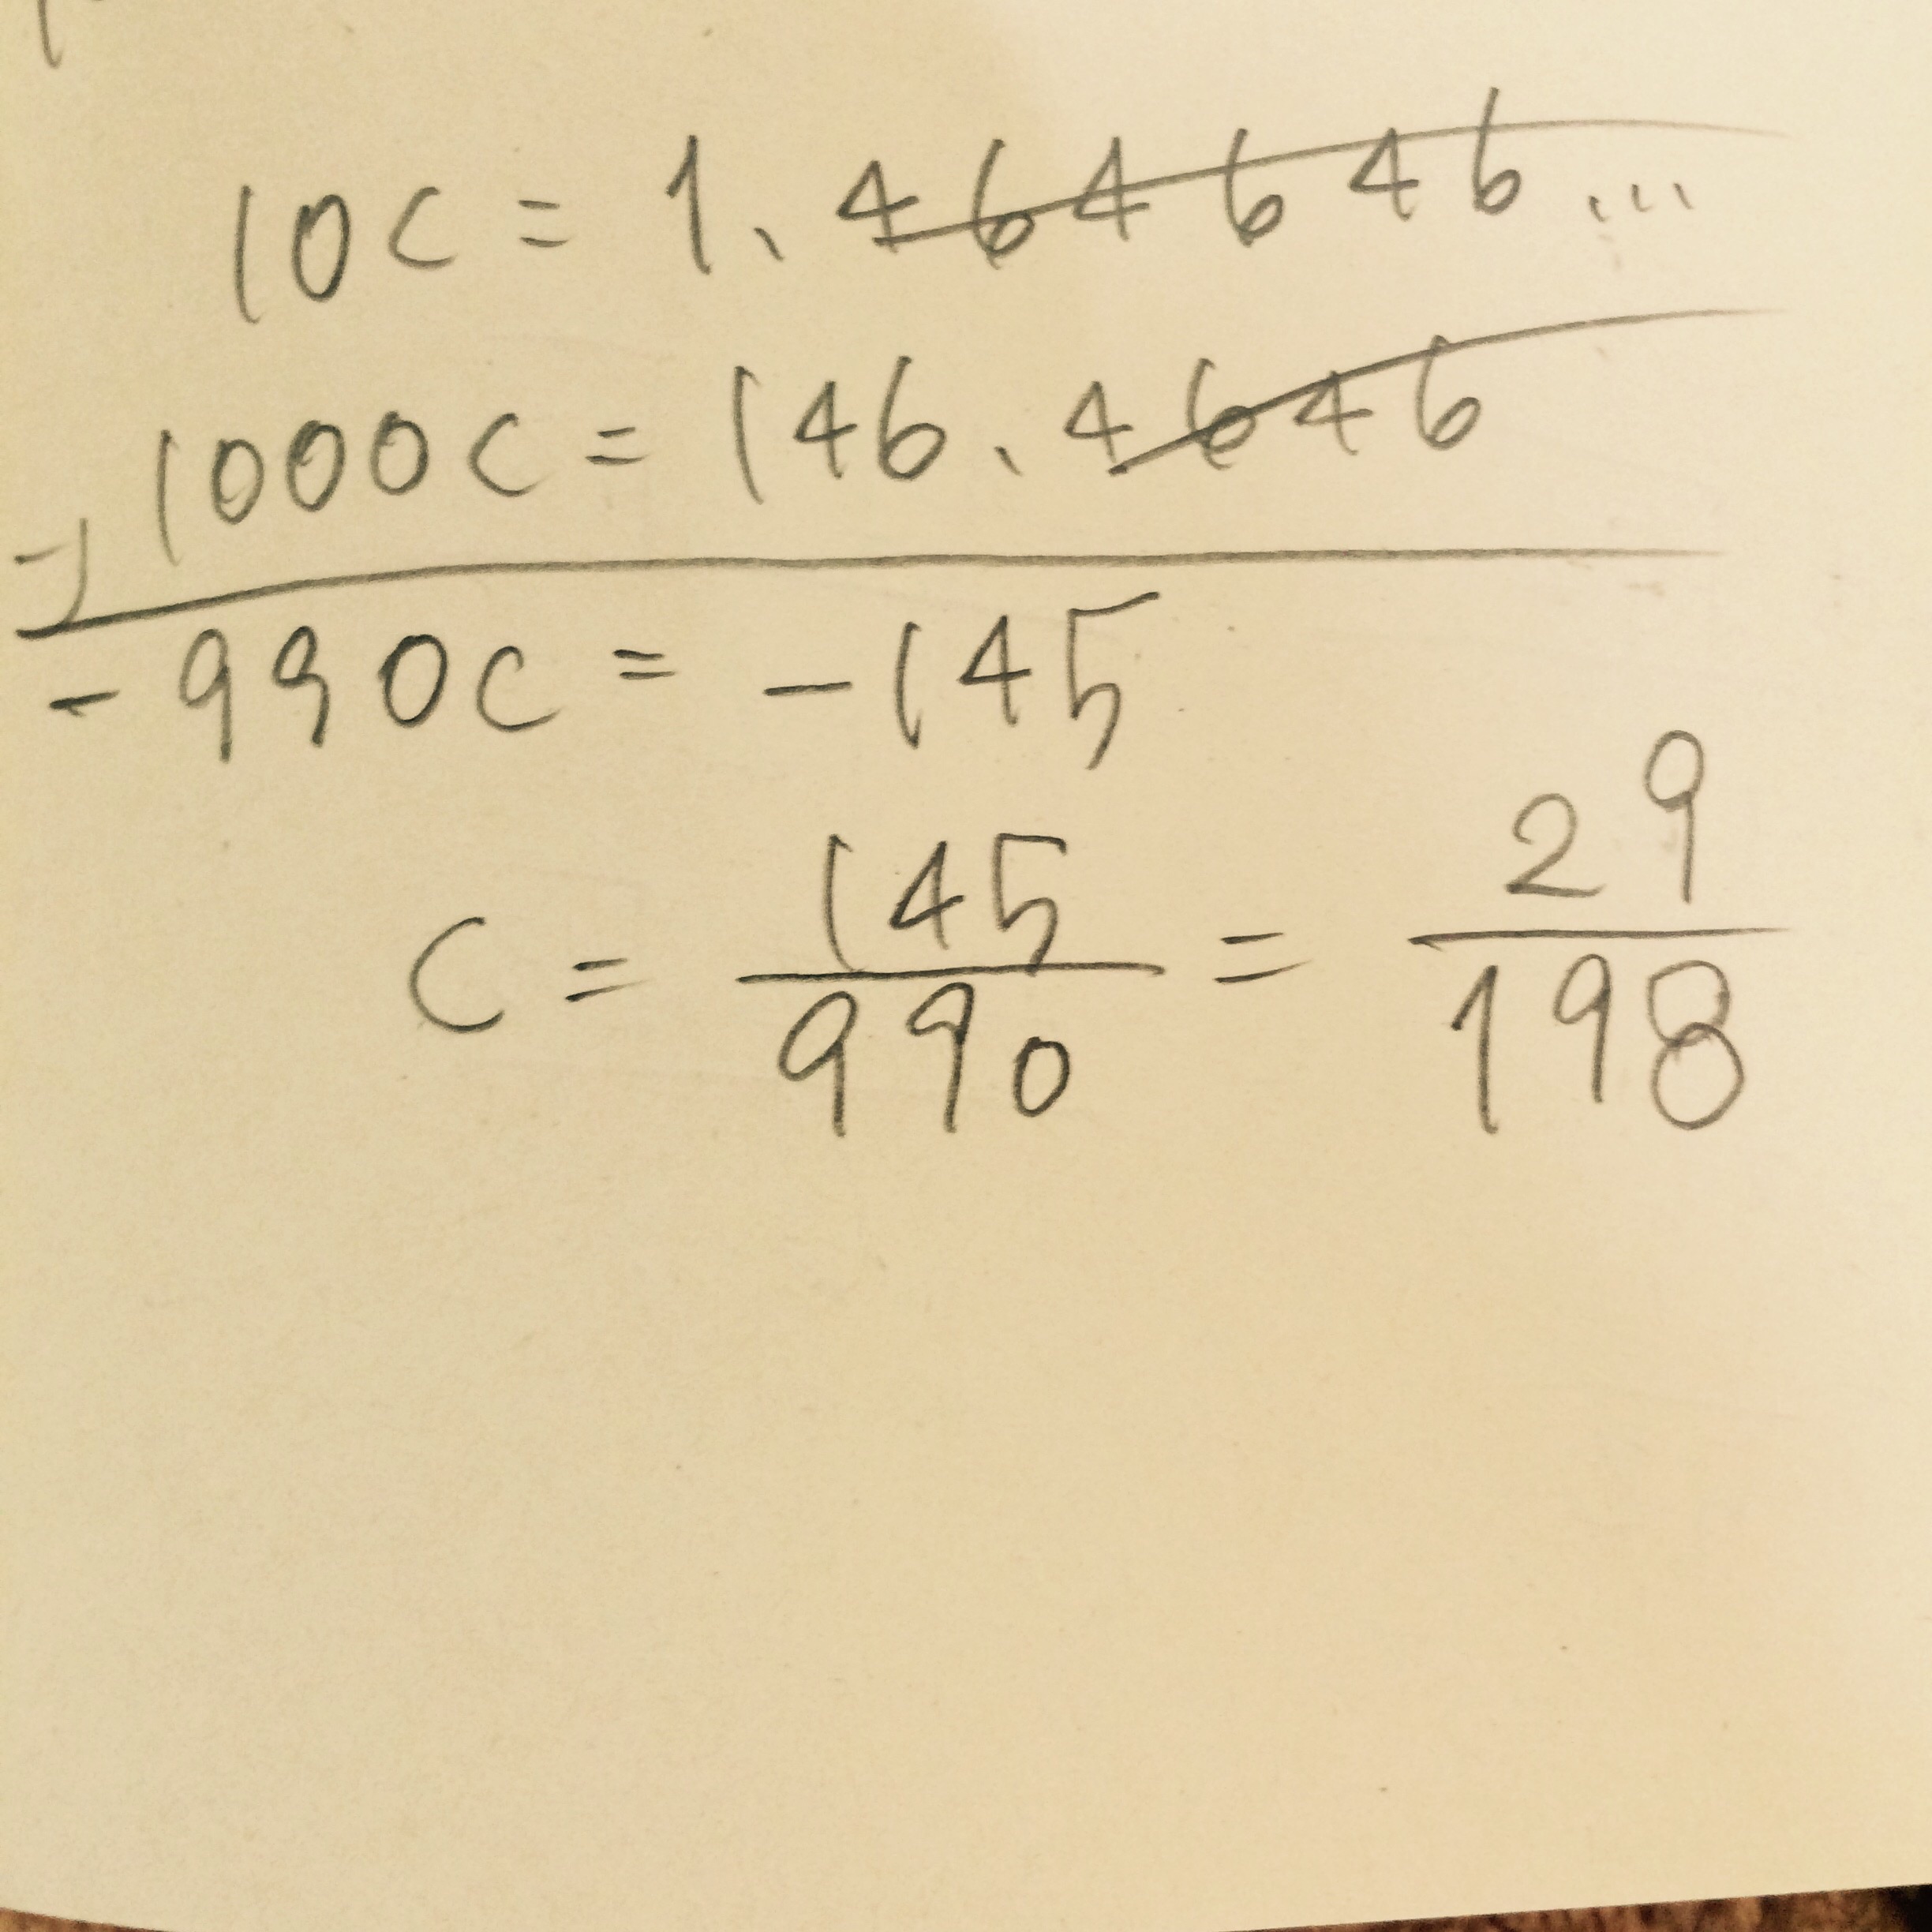 10c = 1.464646...
1000c = 146.4646
-)
-990c = -145
c = 145/990 = 29/198